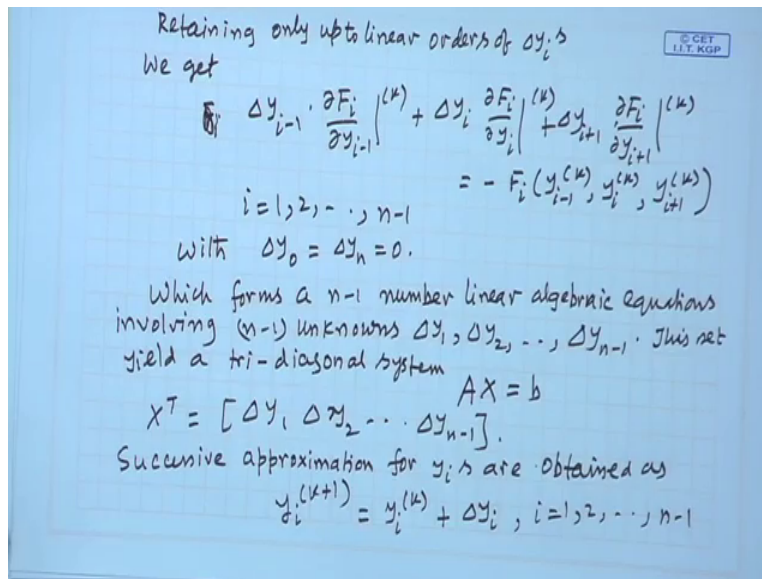 Retaining only upto linear orders of Δy_i's
© CET
I.I.T. KGP
We get
Δy_{i-1} · ∂F_i/∂y_{i-1}|^{(k)} + Δy_i ∂F_i/∂y_i|^{(k)} + Δy_{i+1} ∂F_i/∂y_{i+1}|^{(k)}
= - F_i (y_{i-1}^{(k)}, y_i^{(k)}, y_{i+1}^{(k)})
i=1,2,-·., n-1
With Δy_0 = Δy_n = 0.
Which forms a n-1 number linear algebraic equations
involving (n-1) unknowns Δy_1, Δy_2, ··, Δy_{n-1}. This set
yield a tri-diagonal system
AX = b
X^T = [Δy_1 Δy_2 ··· Δy_{n-1}].
Succesive approximation for y_i s are obtained as
y_i^{(k+1)} = y_i^{(k)} + Δy_i , i=1,2,-··, n-1